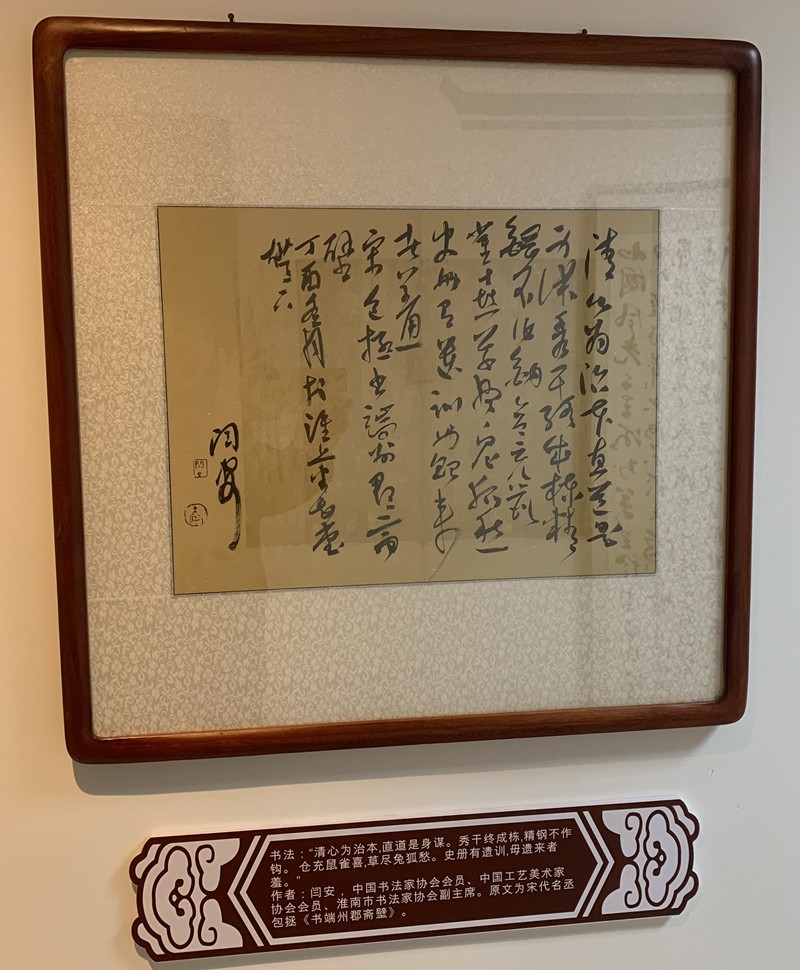 清心為治本直道是
身謀秀干終成棟精
鋼不作鉤倉充鼠
雀喜草盡兔狐愁
史冊有遺訓毋貽來
者羞
宋包拯書端州郡齋
壁
丁酉冬月於淮上
閆安
书法：“清心为治本,直道是身谋。秀干终成栋,精钢不作
钩。仓充鼠雀喜,草尽兔狐愁。史册有遗训,毋遗来者
羞。”
作者：闫安，中国书法家协会会员、中国工艺美术家
协会会员、淮南市书法家协会副主席。原文为宋代名丞
包拯《书端州郡斋壁》。